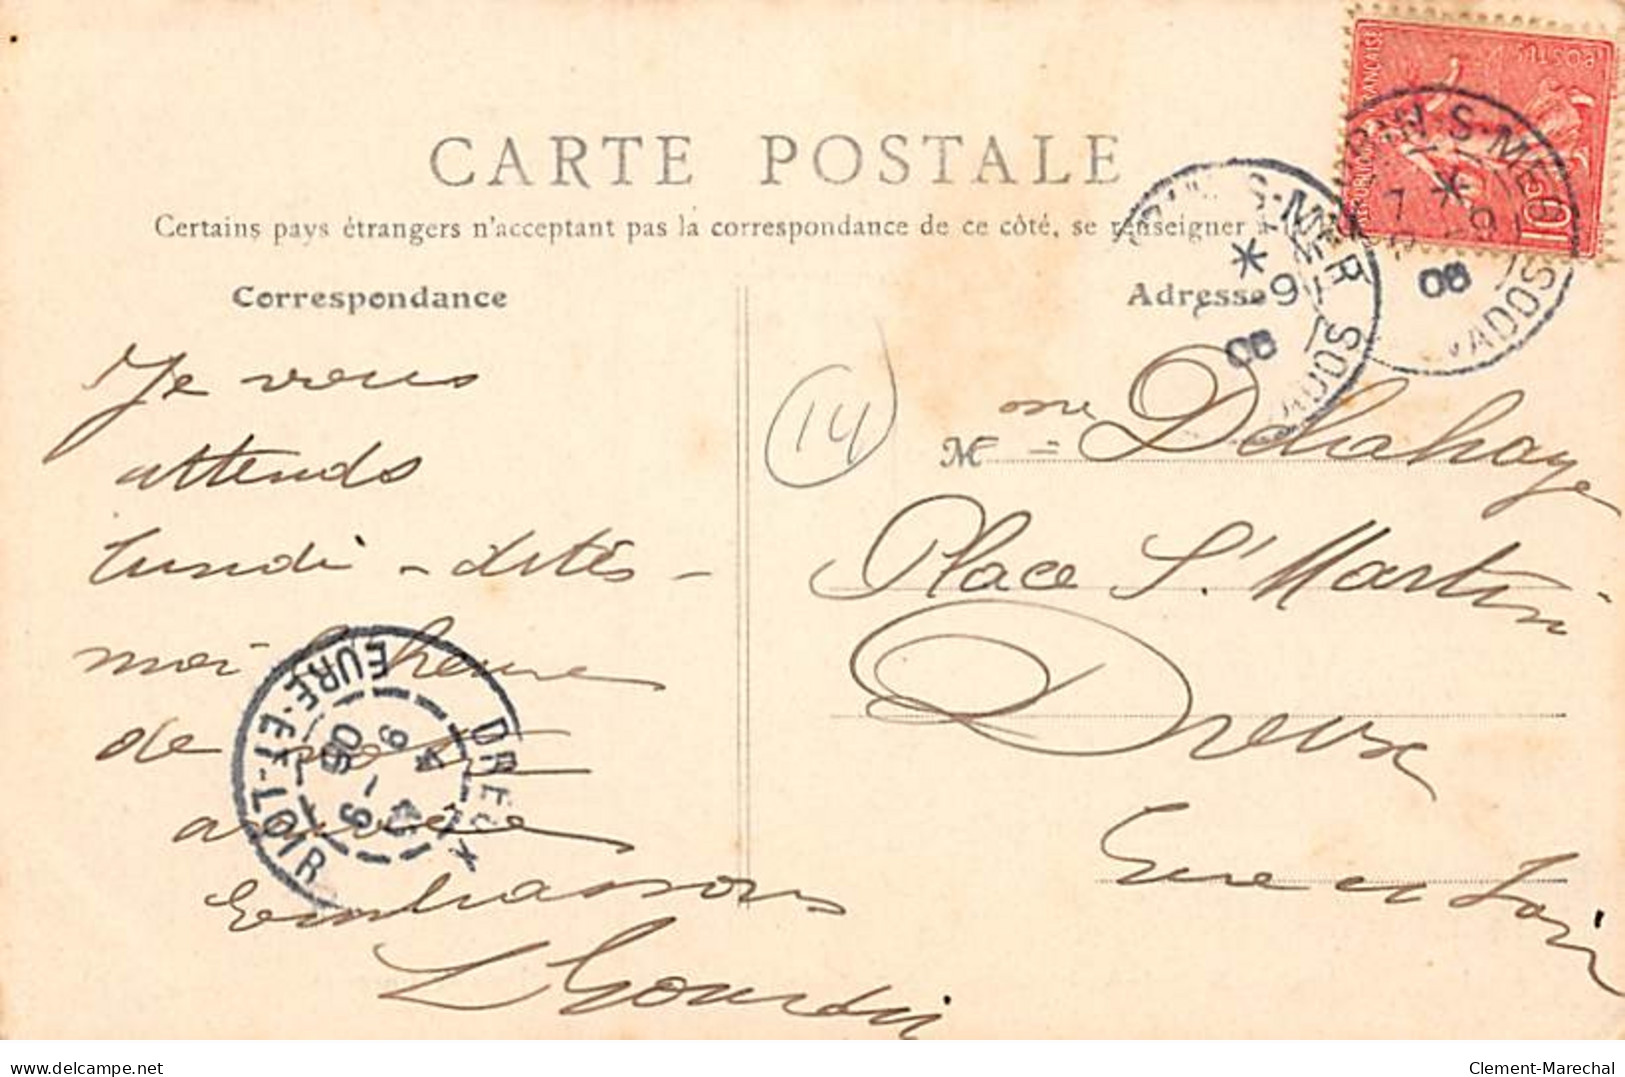 RÉPUBLIQUE FRANÇAISE
POSTES
10c
CARTE POSTALE
Certains pays étrangers n'acceptant pas la correspondance de ce côté, se renseigner à la
Correspondance
Adresse
S-MER
9
06
ADOS
S-MER
7
9
06
VADOS
Je vous
attends
lundi - dites -
moi l'heure
de votre
arrivée
Embrassons
L Gourdin
14
Mme Delahaye
Place St Martin
Dreux
Eure et Loir
DREUX
EURE-ET-LOIR
4
9-9
06
delcampe.net
Clement-Marechal